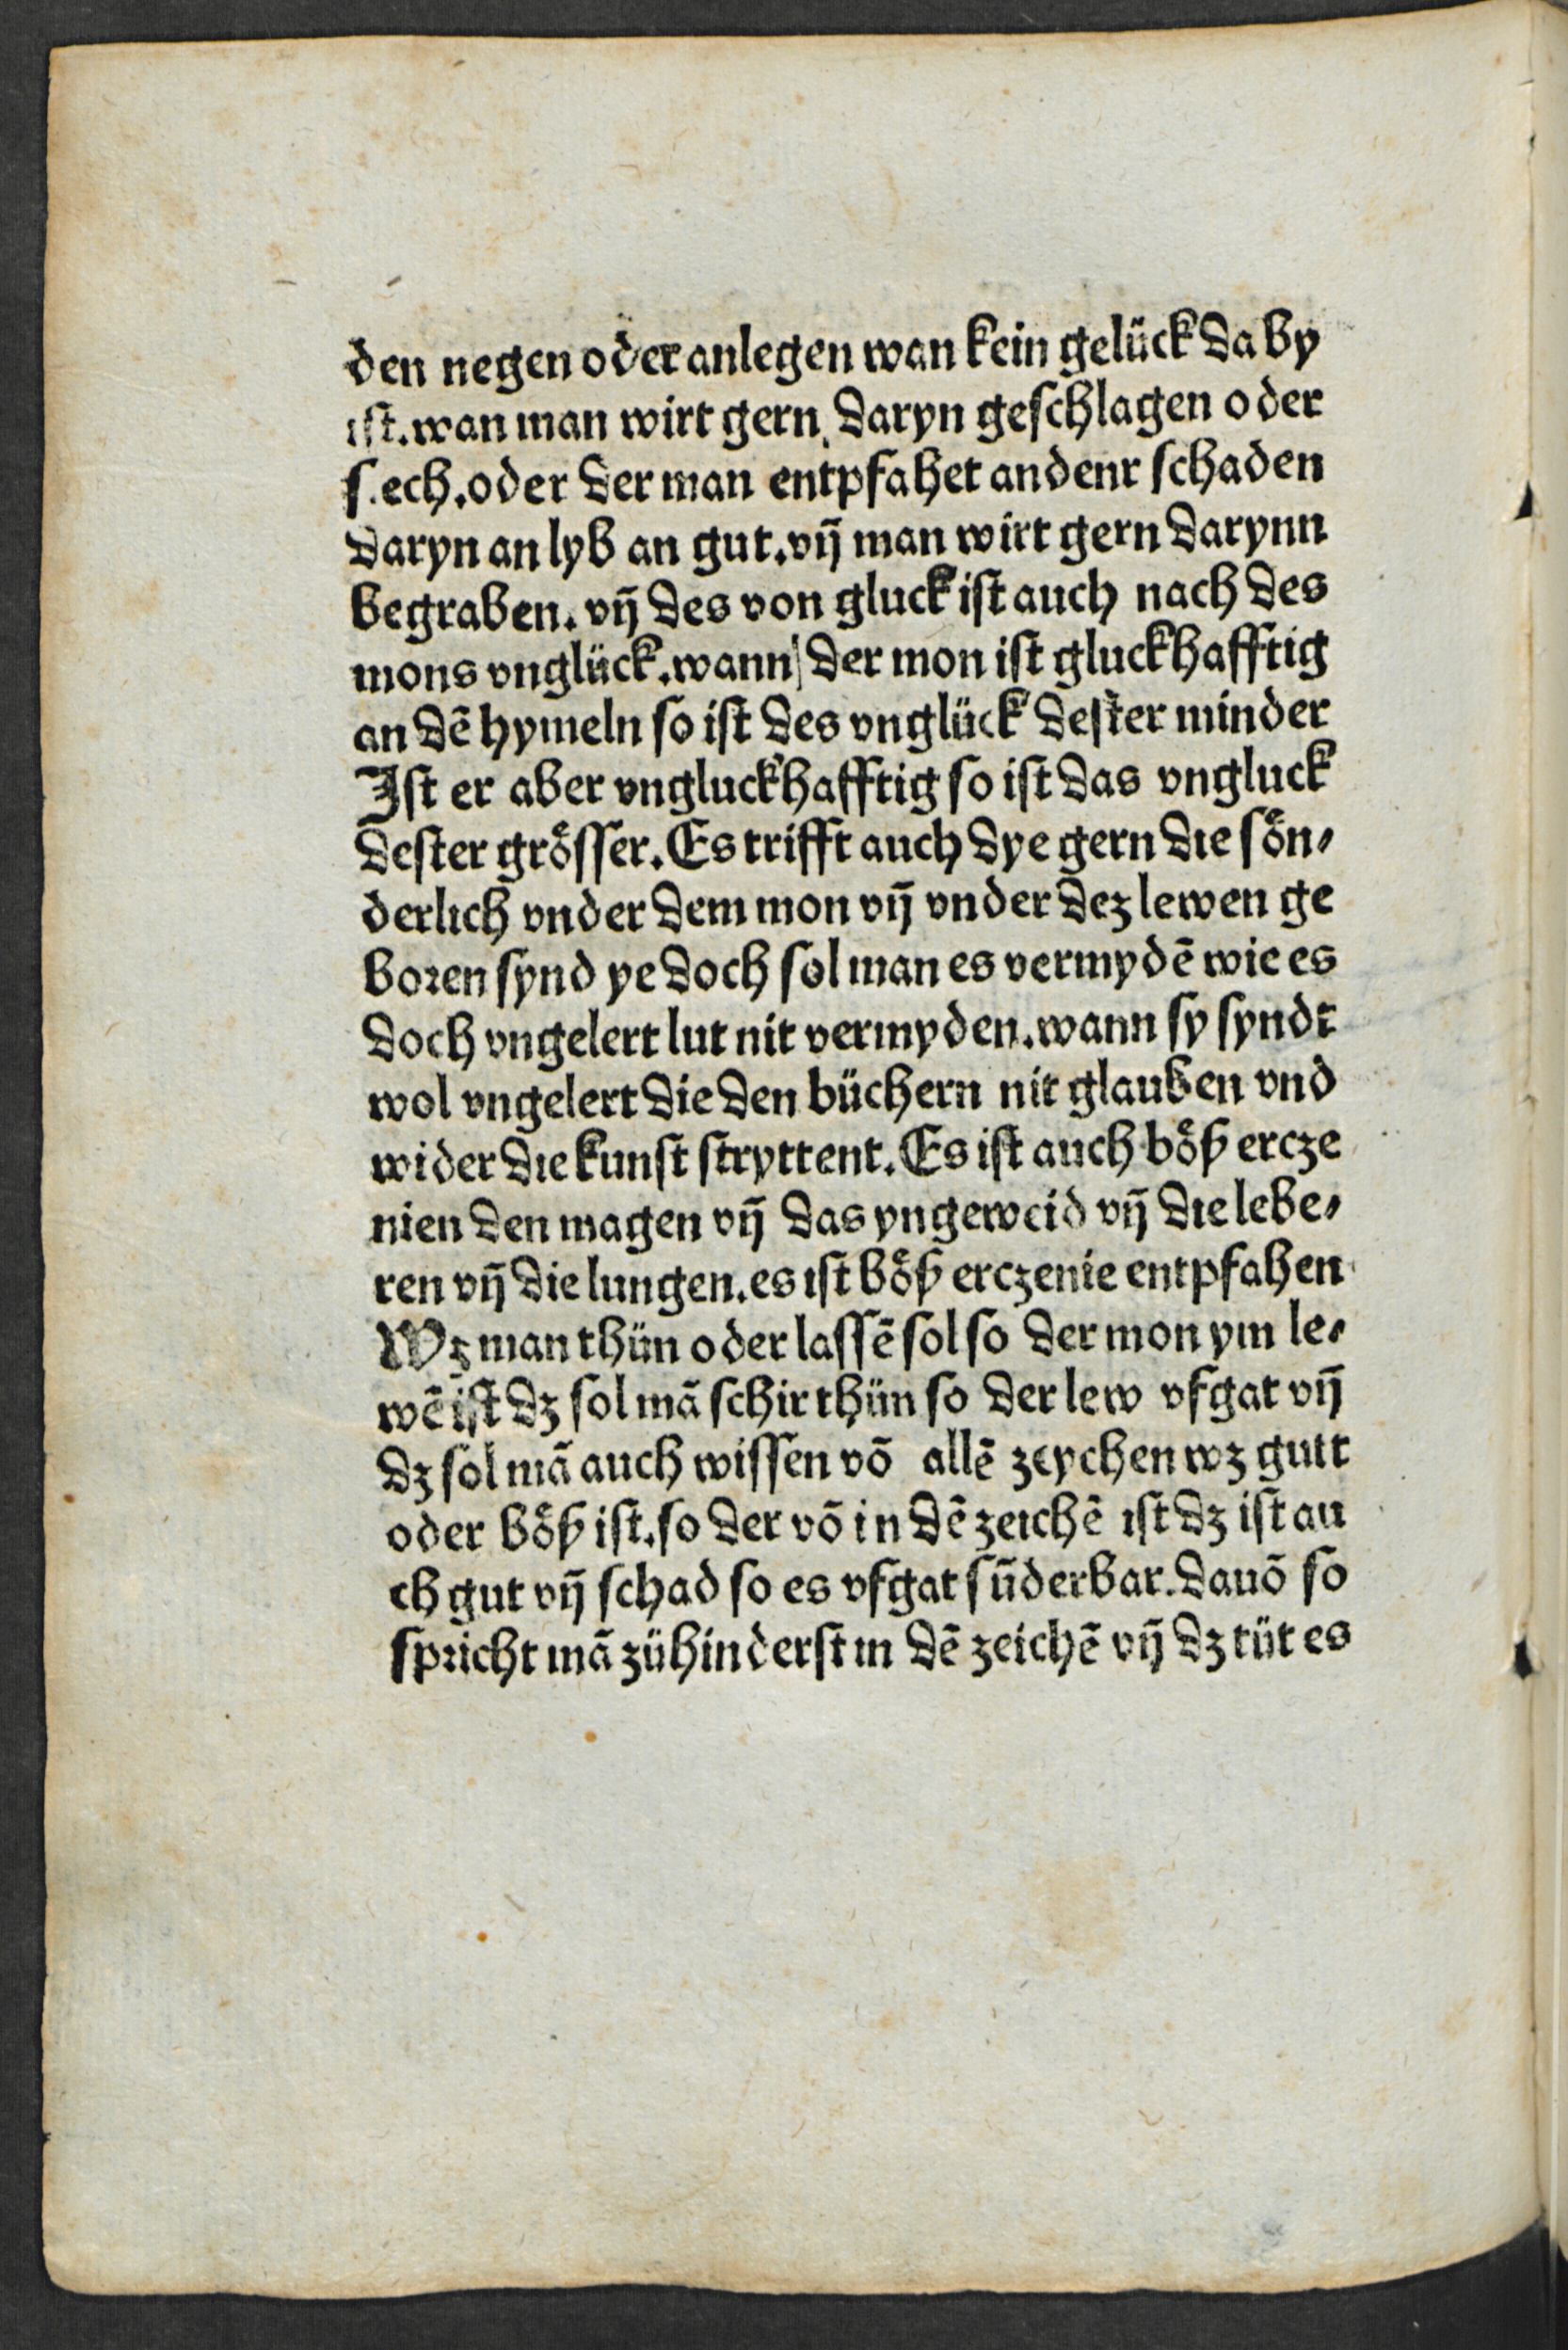 den negen oder anlegen wan kein gelück da by
ist. wan man wirt gern daryn geschlagen oder
s.ech. oder der man entpfahet andenr schaden
daryn an lyb an gut. vñ man wirt gern darynn
begraben. vñ des von gluck ist auch nach des
mons vnglück. wann der mon ist gluckhafftig
an dē hymeln so ist des vnglück dester minder
Ist er aber vngluckhafftig so ist das vngluck
dester grösser. Es trifft auch dye gern die sön⸗
derlich vnder dem mon vñ vnder dez lewen ge
boren synd ye doch sol man es vermydē wie es
doch vngelert lut nit vermyden. wann sy syndt
wol vngelert die den büchern nit glauben vnd
wider die kunst stryttent. Es ist auch böß ercze
nien den magen vñ das yngeweid vñ die lebe⸗
ren vñ die lungen. es ist böß erczenie entpfahen
Wz man thün oder lassē sol so der mon ym le⸗
wē ist dz sol mā schir thün so der lew vfgat vñ
dz sol mā auch wissen vō allē zeychen wz gutt
oder böß ist. so der vō in dē zeichē ist dz ist au
ch gut vñ schad so es vfgat sūderbar. dauō so
spricht mā zühinderst in dē zeichē vñ dz tüt es